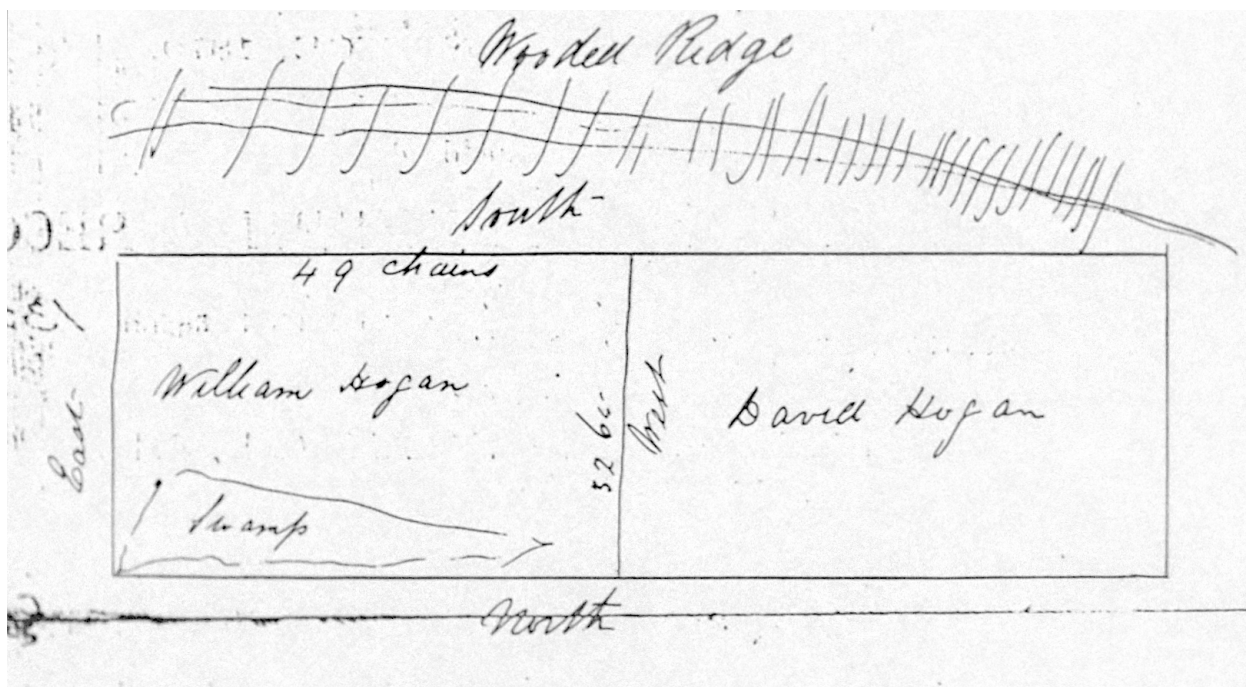 Wooded Ridge
South
49 chains
East
William Hogan
32 60
West
David Hogan
Swamp
North